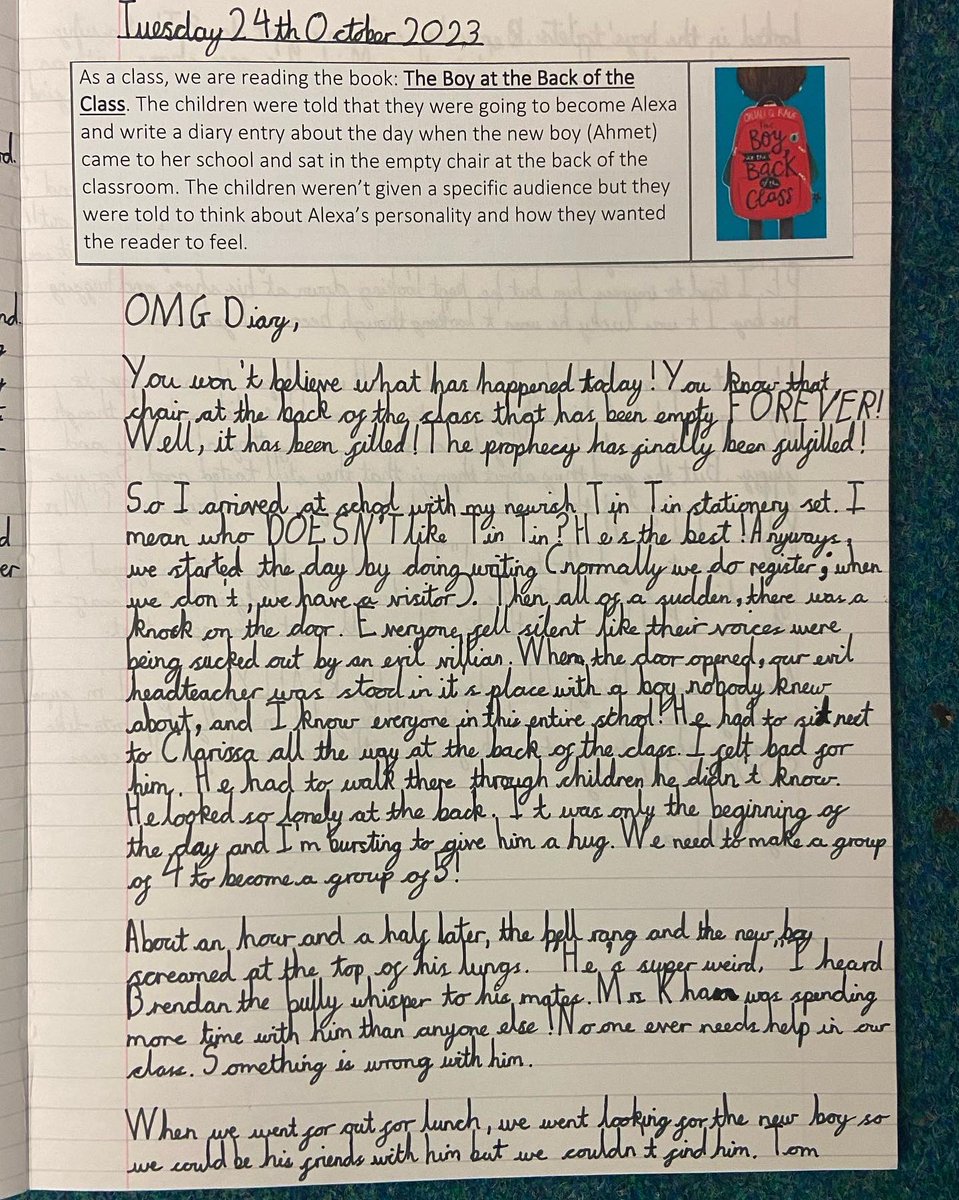 Tuesday 24th October 2023
As a class, we are reading the book: The Boy at the Back of the
Class. The children were told that they were going to become Alexa
and write a diary entry about the day when the new boy (Ahmet)
came to her school and sat in the empty chair at the back of the
classroom. The children weren't given a specific audience but they
were told to think about Alexa's personality and how they wanted
the reader to feel.
ONJALI Q. RAÚF
The
Boy
at the
Back
of the
Class
OMG Diary,
You won't believe what has happened today! You know that
chair at the back of the class that has been empty FOREVER!
Well, it has been filled! The prophecy has finally been fulfilled!
So I arrived at school with my newish Tin Tin stationery set. I
mean who DOESN'T like Tin Tin? He's the best! Anyways,
we started the day by doing writing (normally we do register; when
we don't, we have a visitor). Then all of a sudden, there was a
knock on the door. Everyone fell silent like their voices were
being sucked out by an evil villian. When the door opened, our evil
headteacher was stood in it's place with a boy nobody knew
about, and I know everyone in this entire school! He had to sit nect
to Clarissa all the way at the back of the class. I felt bad for
him. He had to walk there through children he didn't know.
He looked so lonely at the back. It was only the beginning of
the day and I'm bursting to give him a hug. We need to make a group
of 4 to become a group of 5!
About an hour and a half later, the bell rang and the new boy
screamed at the top of his lungs. "He's super weird," I heard
Brendan the bully whisper to his mates. Mrs Khan was spending
more time with him than anyone else! No one ever needs help in our
class. Something is wrong with him.
When we went for out for lunch, we went looking for the new boy so
we could be his friends with him but we couldn't find him. Tom